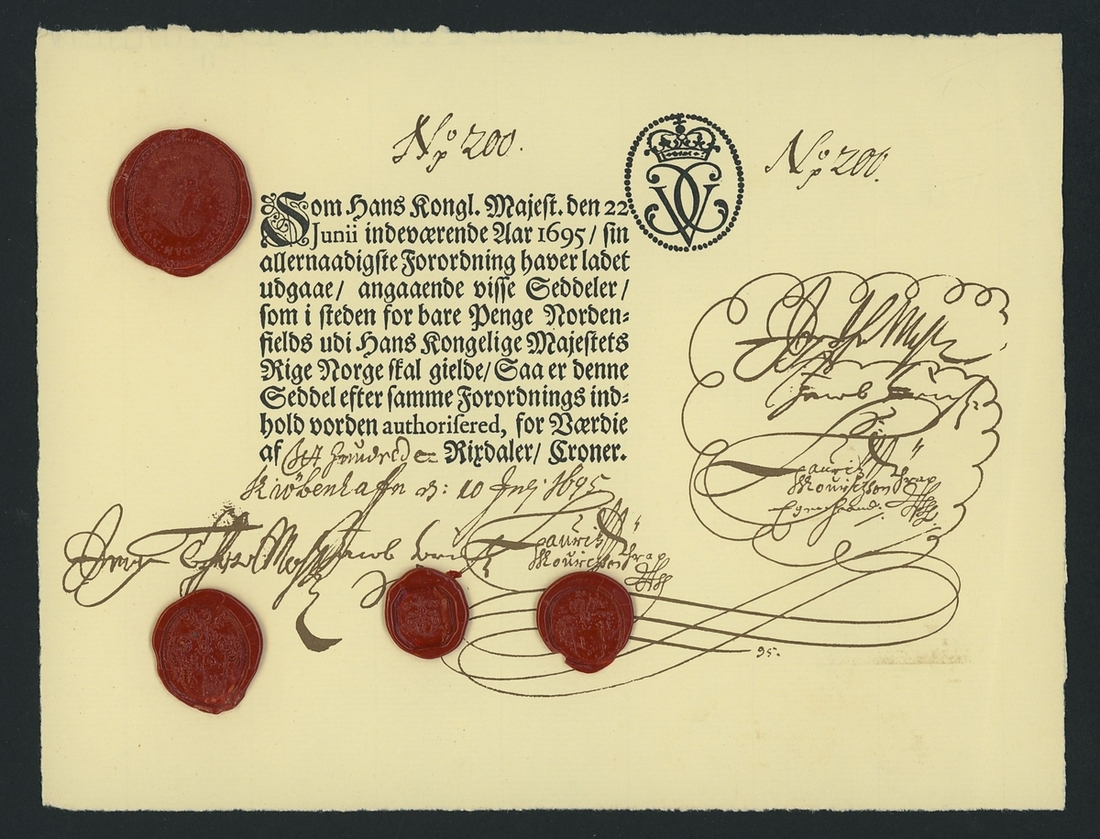 No 200.
No 200.
Som Hans Kongl. Majest. den 22
Junii indeværende Aar 1695/ sin
allernaadigste Forordning haver ladet
udgaae/ angaaende visse Seddeler/
som i steden for bare Penge Norden=
fields udi Hans Kongelige Majestets
Rige Norge skal gielde/ Saa er denne
Seddel efter samme Forordnings ind=
hold vorden authorisered, for Værdie
af Rixdaler/ Croner.
Kiøbenhaffn d: 10 Julj 1695
Laurits
Mouritsen Thrap
Laurits
Mouritsen Thrap
95.